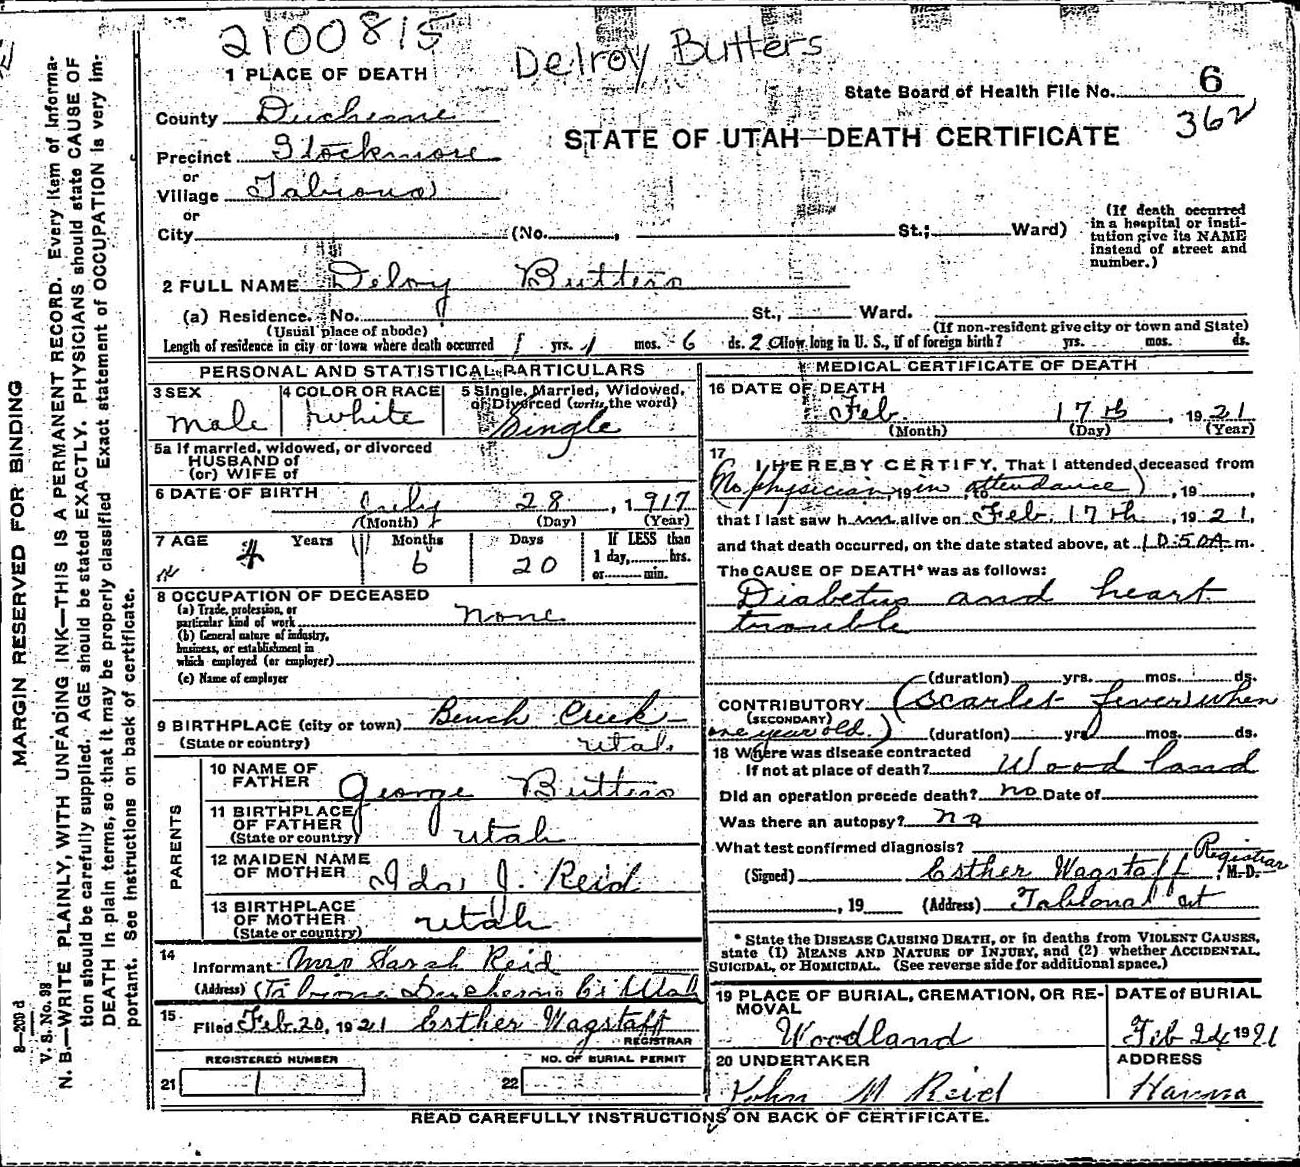 2100815
Delroy Butters
1 PLACE OF DEATH
State Board of Health File No. 6
362
County Duchesne
STATE OF UTAH—DEATH CERTIFICATE
Precinct Stockmore
or
Village Tabiona
or
City (No. , St.; Ward)
(If death occurred in a hospital or institution give its NAME instead of street and number.)
2 FULL NAME Delroy Butters
(a) Residence. No. St., Ward.
(Usual place of abode) (If non-resident give city or town and State)
Length of residence in city or town where death occurred 1 yrs. 1 mos. 6 ds. How long in U. S., if of foreign birth? yrs. mos. ds.
PERSONAL AND STATISTICAL PARTICULARS
3 SEX
male
4 COLOR OR RACE
White
5 Single, Married, Widowed, or Divorced (write the word)
Single
5a If married, widowed, or divorced
HUSBAND of
(or) WIFE of
6 DATE OF BIRTH July 28, 1917
(Month) (Day) (Year)
7 AGE Years Months Days If LESS than
1 day, hrs.
or min.
4 6 20
8 OCCUPATION OF DECEASED
(a) Trade, profession, or
particular kind of work none
(b) General nature of industry,
business, or establishment in
which employed (or employer)
(c) Name of employer
9 BIRTHPLACE (city or town) Bench Creek
(State or country) Utah
PARENTS
10 NAME OF FATHER George Butters
11 BIRTHPLACE OF FATHER
(State or country) Utah
12 MAIDEN NAME OF MOTHER Ida J. Reid
13 BIRTHPLACE OF MOTHER
(State or country) Utah
14
Informant Mrs Sarah Reid
(Address) (Tabiona Duchesne Co Utah
15
Filed Feb. 20, 1921 Esther Wagstaff
REGISTRAR
REGISTERED NUMBER
21 1
NO. OF BURIAL PERMIT
22
MEDICAL CERTIFICATE OF DEATH
16 DATE OF DEATH
Feb. 17th, 1921
(Month) (Day) (Year)
17
I HEREBY CERTIFY, That I attended deceased from
(No physician in attendance) , 19 , to , 19 ,
that I last saw him alive on Feb. 17th, 1921,
and that death occurred, on the date stated above, at 10:50A m.
The CAUSE OF DEATH* was as follows:
Diabetus and heart
trouble
(duration) yrs. mos. ds.
CONTRIBUTORY (Scarlet fever when
(SECONDARY)
one year old.) (duration) yrs. mos. ds.
18 Where was disease contracted
If not at place of death? Woodland
Did an operation precede death? no Date of
Was there an autopsy? no
What test confirmed diagnosis?
(Signed) Esther Wagstaff Registrar M.D.
, 19 (Address) Tabiona Ut
* State the DISEASE CAUSING DEATH, or in deaths from VIOLENT CAUSES,
state (1) MEANS AND NATURE OF INJURY, and (2) whether ACCIDENTAL,
SUICIDAL, or HOMICIDAL. (See reverse side for additional space.)
19 PLACE OF BURIAL, CREMATION, OR REMOVAL
Woodland
DATE of BURIAL
Feb 24 1921
20 UNDERTAKER
John M Reid
ADDRESS
Hanna
READ CAREFULLY INSTRUCTIONS ON BACK OF CERTIFICATE.
MARGIN RESERVED FOR BINDING
8—209 d
V. S. No. 98
N. B.—WRITE PLAINLY, WITH UNFADING INK—THIS IS A PERMANENT RECORD. Every item of information should be carefully supplied. AGE should be stated EXACTLY. PHYSICIANS should state CAUSE OF DEATH in plain terms, so that it may be properly classified. Exact statement of OCCUPATION is very important. See instructions on back of certificate.